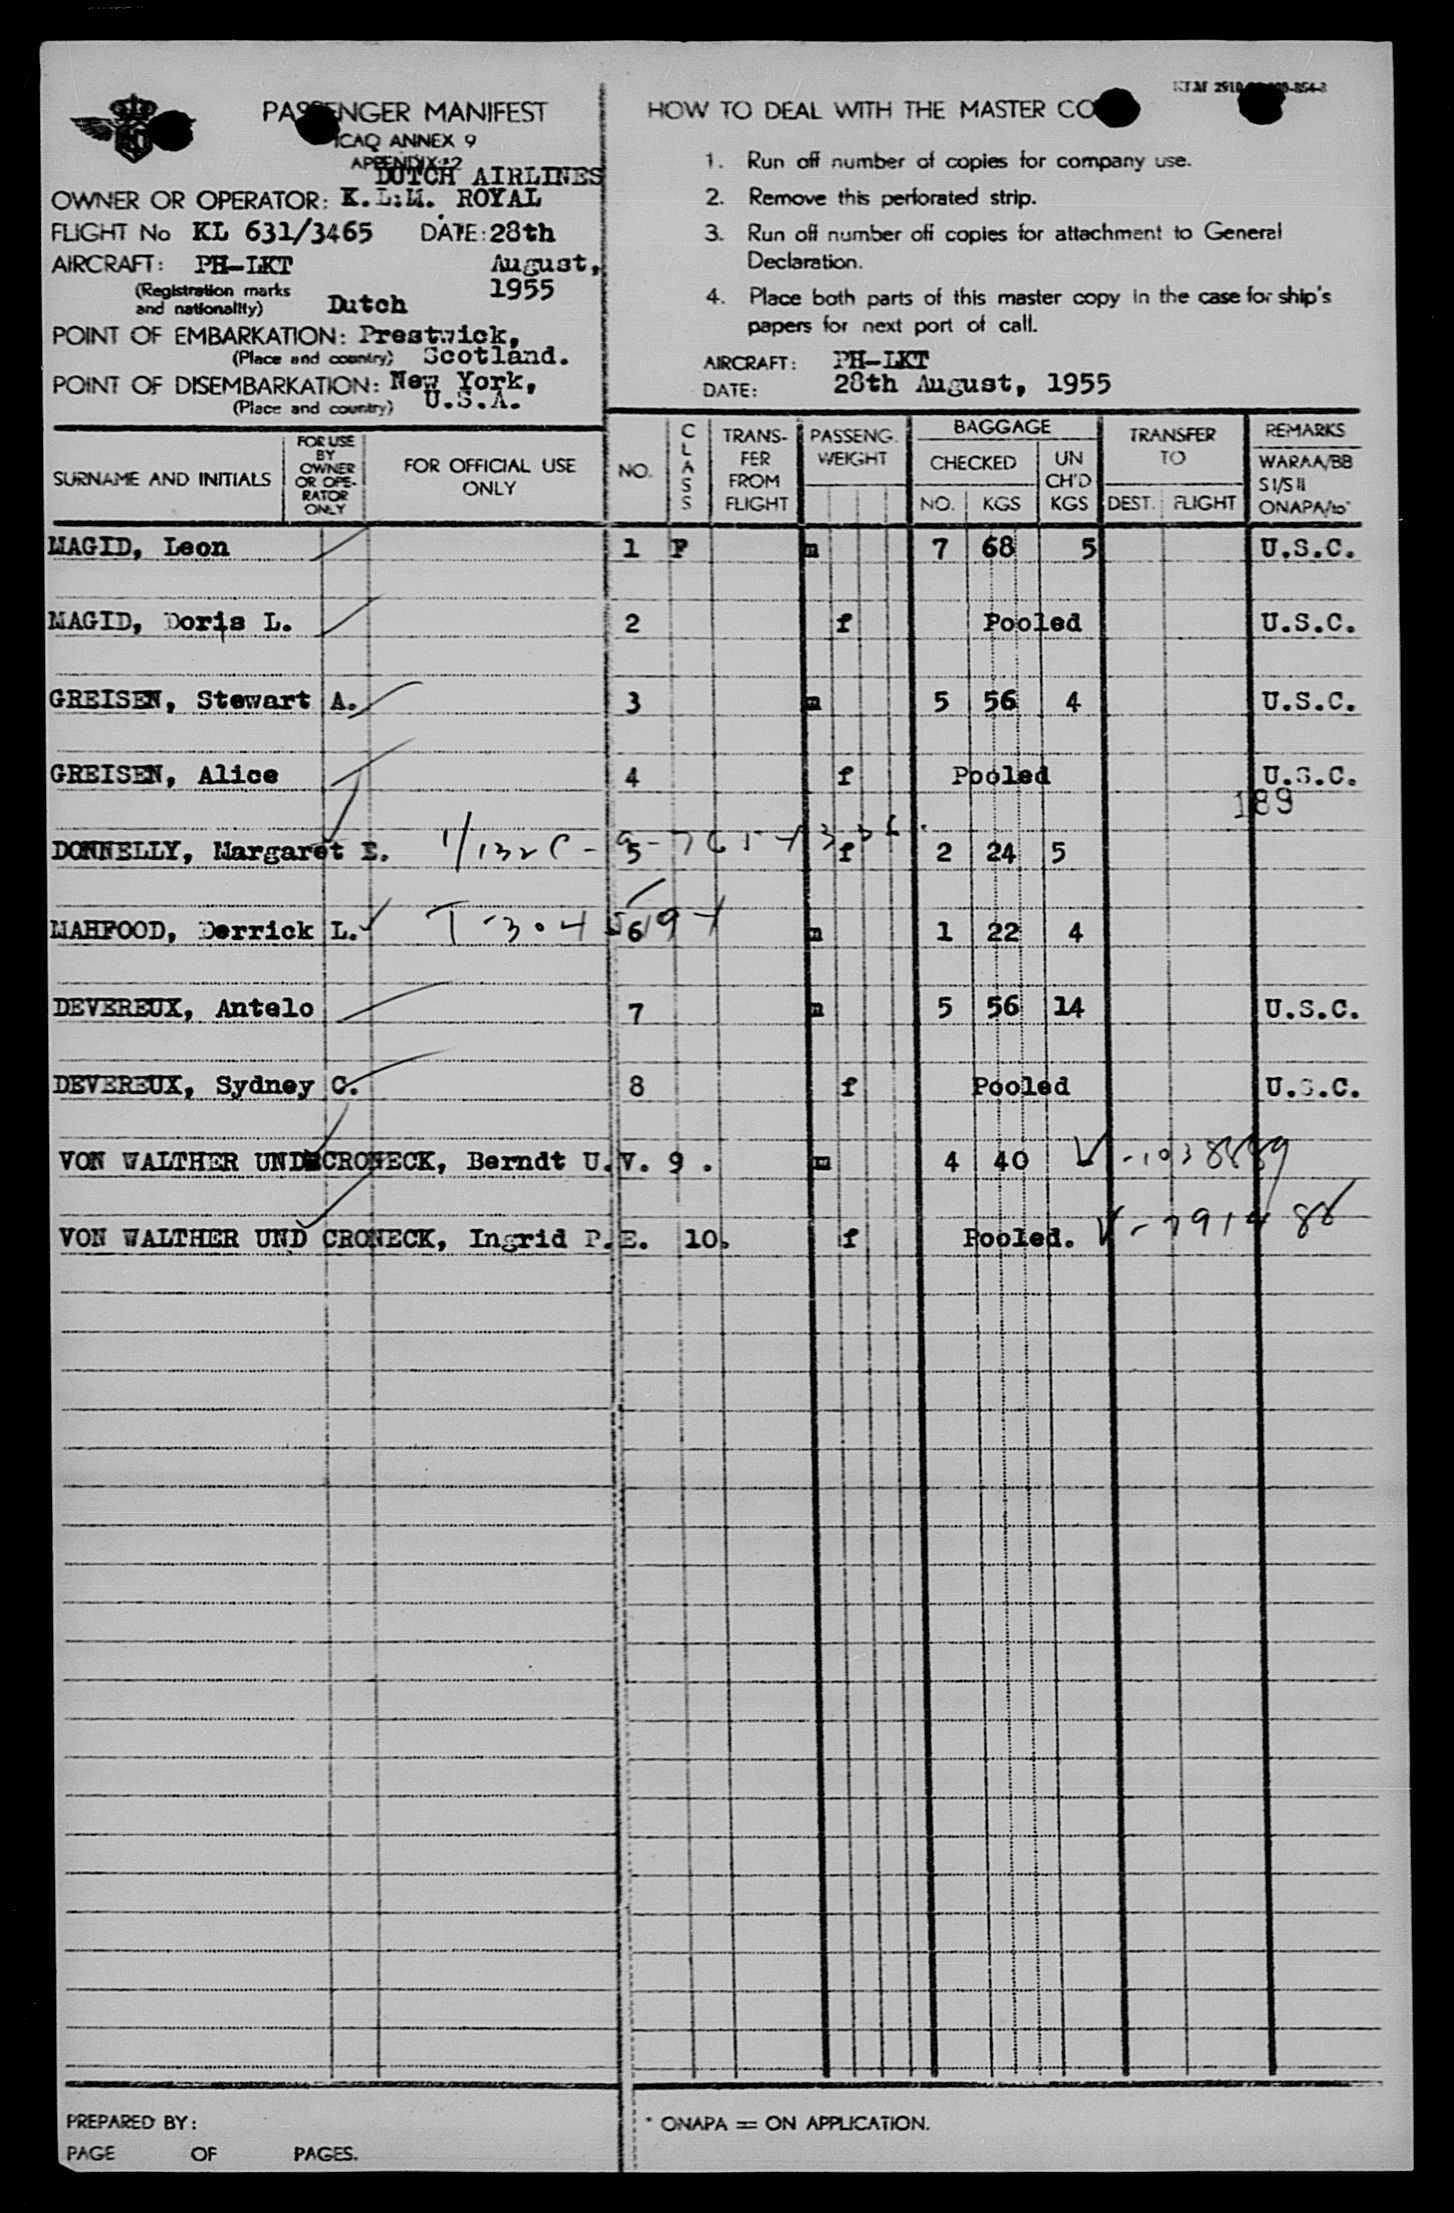 PASSENGER MANIFEST
ICAO ANNEX 9
APPENDIX *2
DUTCH AIRLINES
OWNER OR OPERATOR: K.L.M. ROYAL
FLIGHT No KL 631/3465 DATE: 28th
AIRCRAFT: PH-LKT August,
(Registration marks 1955
and nationality) Dutch
POINT OF EMBARKATION: Prestwick,
(Place and country) Scotland.
POINT OF DISEMBARKATION: New York,
(Place and country) U.S.A.
HOW TO DEAL WITH THE MASTER CO
1. Run off number of copies for company use.
2. Remove this perforated strip.
3. Run off number off copies for attachment to General
Declaration.
4. Place both parts of this master copy in the case for ship's
papers for next port of call.
AIRCRAFT: PH-LKT
DATE: 28th August, 1955
SURNAME AND INITIALS
FOR USE
BY
OWNER
OR OPE-
RATOR
ONLY
FOR OFFICIAL USE
ONLY
NO.
CLASS
TRANS-
FER
FROM
FLIGHT
PASSENG.
WEIGHT
BAGGAGE
CHECKED
NO. KGS
UN
CH'D
KGS
TRANSFER
TO
DEST. FLIGHT
REMARKS
WARAA/BB
S I/S II
ONAPA/to*
MAGID, Leon 1 F m 7 68 5 U.S.C.
MAGID, Doris L. 2 f Pooled U.S.C.
GREISEN, Stewart A. 3 m 5 56 4 U.S.C.
GREISEN, Alice 4 f Pooled U.S.C.
189
DONNELLY, Margaret E. 5 f 2 24 5
MAHFOOD, Derrick L. 6 m 1 22 4
DEVEREUX, Antelo 7 m 5 56 14 U.S.C.
DEVEREUX, Sydney C. 8 f Pooled U.S.C.
VON WALTHER UND CRONECK, Berndt U.V. 9. m 4 40 V-1038889
VON WALTHER UND CRONECK, Ingrid P.E. 10. f Pooled. V-7914 88
PREPARED BY:
PAGE OF PAGES.
* ONAPA = ON APPLICATION.